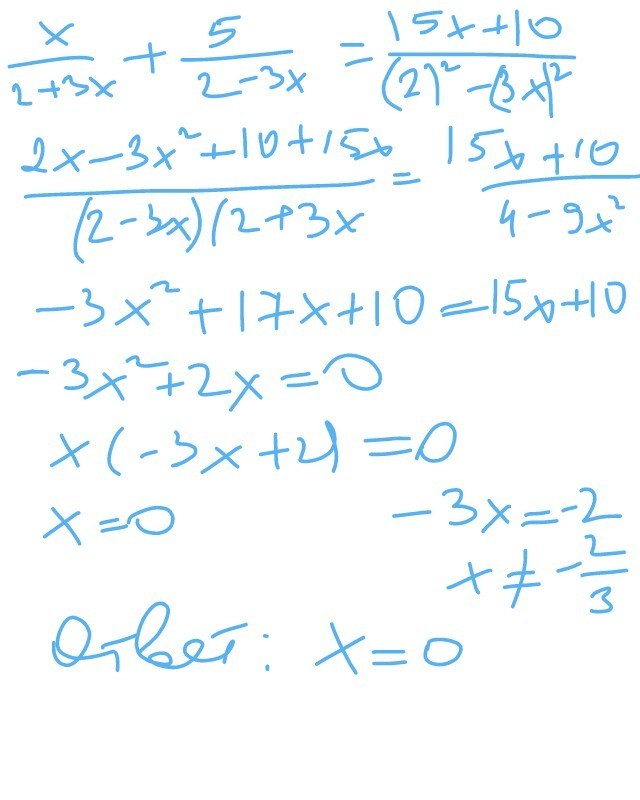 x/(2+3x) + 5/(2-3x) = (15x+10)/((2)² -(3x)²)
(2x-3x²+10+15x)/((2-3x)(2+3x) = (15x+10)/(4-9x²)
-3x²+17x+10=15x+10
-3x²+2x=0
x(-3x+2)=0
x=0 -3x=-2
x≠-2/3
Ответ: x=0